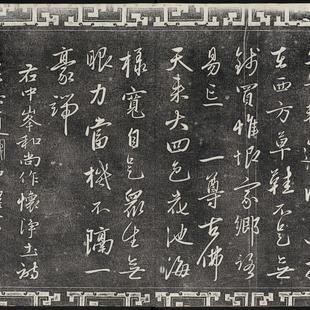 在西方草鞋不是無
錢買惟恨家鄉路
易忘 一尊古佛
天來大四色花池海
樣寬自是眾生無
眼力當機不隔一
豪端
右中峯和尚作懷淨土詩